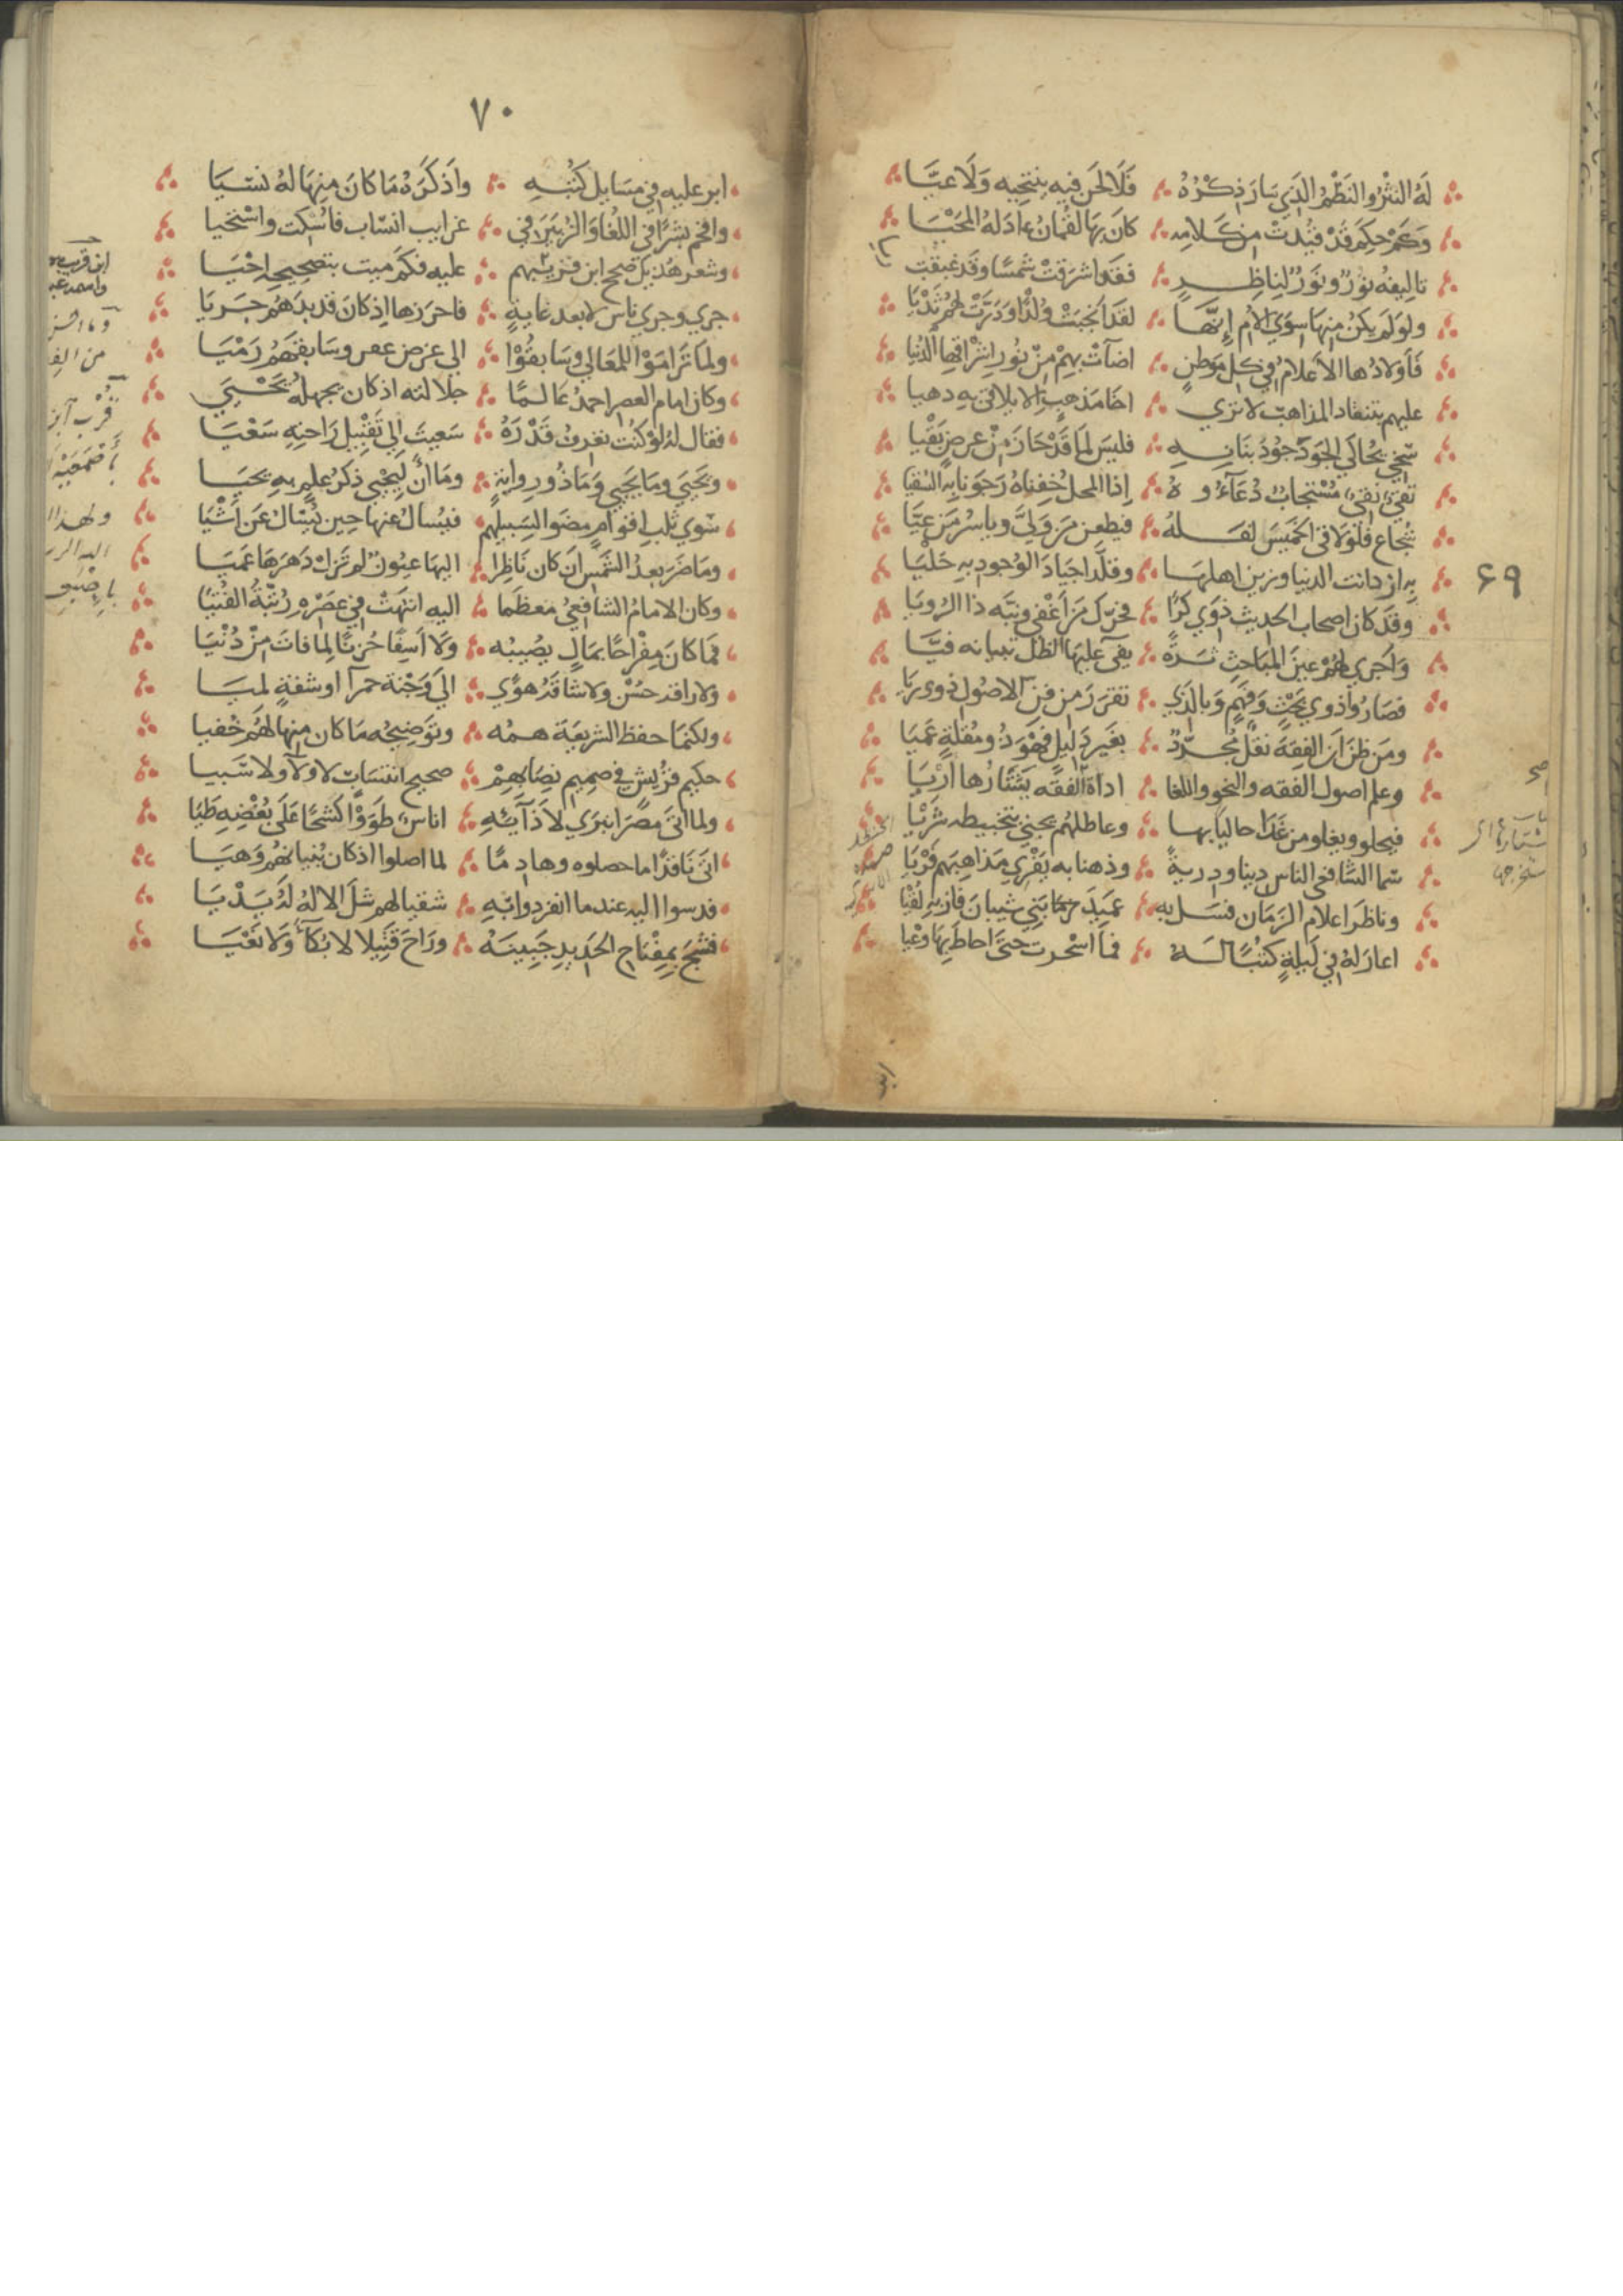 لَهُ النَّثْرُ وَالنَّظْمُ الَّذِي سَارَ ذِكْرُهُ فَلَا لَحْنَ فِيهِ يَنْتَحِيهِ وَلَا عِيَّا
وَكَمْ حِكَمٍ قَدْ قُيِّدَتْ مِنْ كَلَامِهِ كَانَ بِهَا لُقْمَانُ عَادَ لَهُ الْمَحْيَا
تاليفه نَوْرٌ ونُورٌ لِنَاظِرٍ فقد اشرقَتْ شمسًا وقد عبقت
ولو لم يكنْ منها سوى الأم إنّها لقد انجبتْ وُلْدًا ودَرَّتْ لهم ثَدْيَا
فَأولادُها الاعلامُ في كل مَوطنٍ اضآتْ بهمْ منْ نُورِ اشراقها الدُّنيا
عليهم بتنقاد المذاهب لا ترى اخا مذهبٍ الا يلاقى به دهيا
سخي يُحاكي الجَوْدَ جُودُ بَنَانِهِ فليسَ لما قدْ حازَ منْ عرضٍ بَقْيا
تقيٌّ نقيٌّ مُسْتجابٌ دُعَآؤُهُ إذا المحل خِفناهُ رَجَوْنا به السُّقيا
شُجاع فلَوْ لاقى الخَميسَ لفَلَّهُ فيطعن مَن وَلَّى وياسُر مَن عَيَّا
به ازدانت الدنيا وزين اهلها وقلَّد اجيادَ الوُجودِ بهِ حَلْيَا
٦٩
وقد كان اصحاب الحديث ذوي كرًا فحرَّكَ مَن أغفى ونبّه ذا الرُويَا
وَأجرى لهُمْ عينَ المَبَاحثِ ثَرَّةً يفي عليها الظل تبيانه فيَّا
فصَارُوا ذوي بَحْثٍ وَفَهْمٍ وَبالذي تقرّرَ من فن الاصُول ذوي ريَا
ومَن ظنَّ أنّ الفقهَ نقلٌ مُجرّدٌ بغَيرِ دَليلٍ فَهْوَ ذُو مُقلَةٍ عَميَا
وعلم اصول الفقه والنحو واللغا اداة الفقه يَشْتَارُها اَرْيَا
فيحلو ويغلو من غَدَا حاليًا بها وعاطلهم يجني بتخبيطه شَرْيَا
سَما الشَّافعي الناس دينا ودريةً وذهنا به يَفْرِي مَذاهبَهم فَرْيَا
وناظرَ اعلام الزمَان فسَل به عميدَ حِمَا بَني شيبانَ فازَ به لُقْيَا
اعارَ لهُ في لَيلةٍ كتْبًا لَهُ فما اسْحرت حتى احاطَ بها وعْيا
٧٠
ابر عليه في مسَايل كُتْبِهِ واذكَرَهُ مَا كانَ مِنهَا لهُ نَسْيَا
وافحم بشرًا في اللغا والزبير في غرايب انسَاب فاسْكت واسْتحيا
وشعر هُذيل صحح ابن قُريبهم عليه فكَم ميت بتصحيحه احْيَا
جرى وجرى ناس لابعد غايةٍ فاحرزها اذ كانَ قد بذَّهُم جَريَا
ولما تَرامَوْا للمَعالي وسَابقُوْا الى غرض وسَابقهُمْ رَمْيَا
وكان امام العصر احمدُ عَالمًا جلالته اذ كان يجهلُهُ يَحْيَى
فقال لهُ لوْ كُنتَ تعرفُ قَدْرَهُ سَعيتَ الى تقبيل رَاحتِهِ سَعْيَا
ويَحيى وما يَحيى وَما ذُو روايةٍ ومَا انْ ليحْيى ذكرُ علمٍ به يحيَا
سوى ثلب اقوامٍ مضَوا لسَبيلهم فيُسأل عنها حين يُسال عن أشْيَا
ومَا ضرَّ بعدَ الشمس ان كان نَاظرا اليها عيُونٌ لم تزل دَهرَها عَميَا
وكان الامامُ الشافعيُّ معظما اليه انتهَتْ في عصْرِهِ رُتْبَةُ الفُتْيَا
فما كانَ مِفْرَاحًا بمالٍ يصُيبُه وَلا أسِفًا حُزنًا لما فاتَ منْ دُنْيَا
ولا راقه حُسْنٌ ولا شاقَهُ هَوًى الى وَجْنة حمرآ او شفةٍ لميَا
ولكنما حفظ الشريعَة همُّه وتوضيحُه مَا كان منها لهُم خُفيا
حكيم قُرَيش في صَميم نِصَابهِمْ صحيح انتسَاب لا ولآ ولا سَبيا
ولما اتَى مصرَ انبَرى لأذآئِهِ اناسٌ طوَوْا كَشْحًا عَلَى بُغْضِهِ طَيَّا
اتَى نَاقدًا ما حصلوه وهادِمًا لما اصلوا اذ كان بُنيانُهُم وَهيَا
فدسوا اليه عندما انفردوا بهِ شقيا لهم شلّ الالهُ لهُ يَدْيَا
فشجَّ بمِفْتاحِ الحَديدِ جَبينَهُ ورَاحَ قتيلا لا بُكَآءَ وَلا نَعْيَا